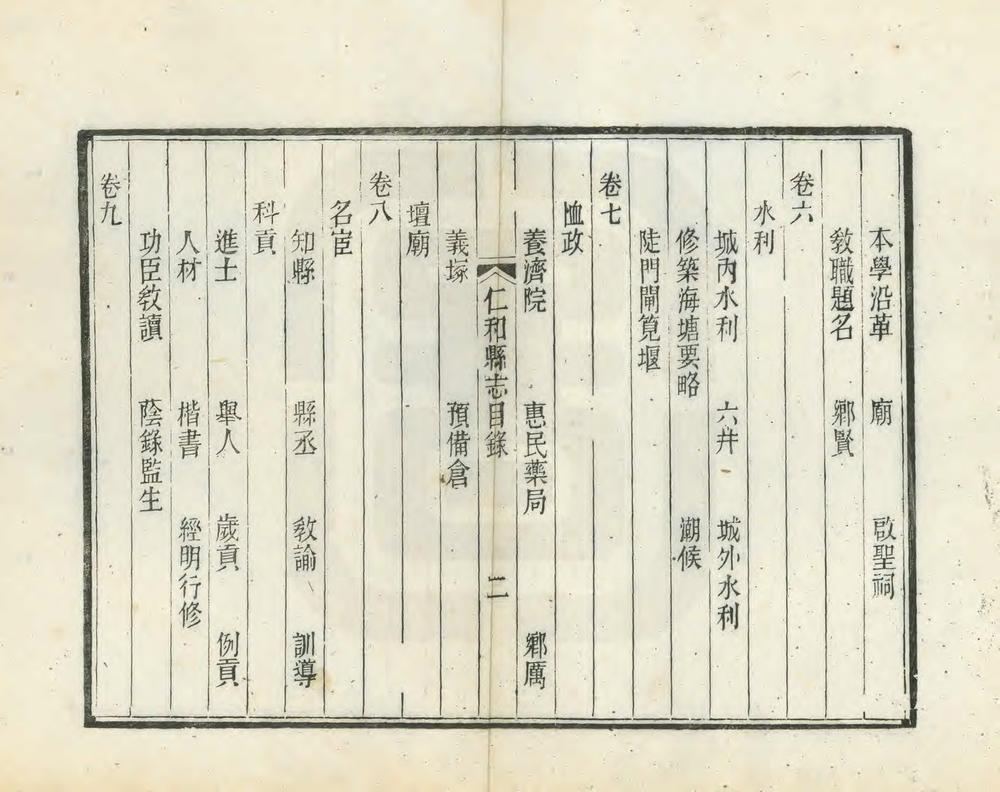 本學沿革　廟　啟聖祠
敎職題名　鄉賢
卷六
水利
城內水利　六井　城外水利
修築海塘要略　潮候
陡門閘筧堰
卷七
恤政
養濟院　惠民藥局　鄉厲
仁和縣志目錄　二
義塚　預備倉
壇廟
卷八
名宦
知縣　縣丞　敎諭　訓導
科貢
進士　舉人　歲貢　例貢
人材　楷書　經明行修
功臣敎讀　蔭錄監生
卷九